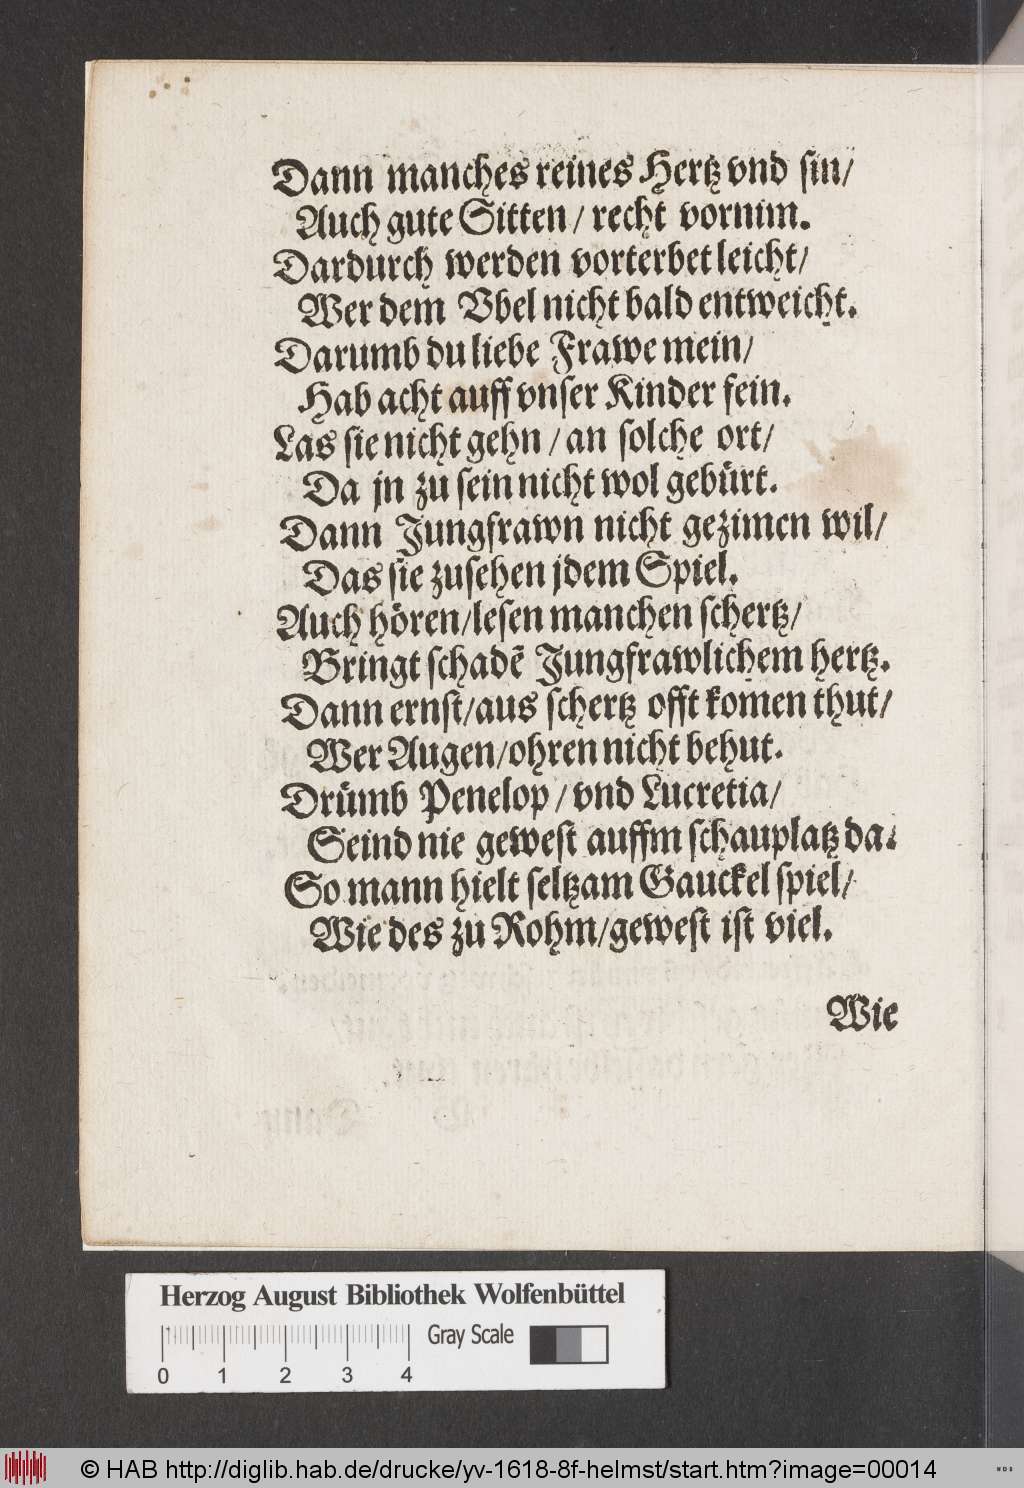 Dann manches reines Hertz vnd sin/
Auch gute Sitten/ recht vornim.
Dardurch werden vorterbet leicht/
Wer dem Vbel nicht bald entweicht.
Darumb du liebe Frawe mein/
Hab acht auff vnser Kinder fein.
Las sie nicht gehn/ an solche ort/
Da jn zu sein nicht wol gebürt.
Dann Jungfrawn nicht gezimen wil/
Das sie zusehen jdem Spiel.
Auch hören/lesen manchen schertz/
Bringt schadẽ Jungfrawlichem hertz.
Dann ernst/aus schertz offt komen thut/
Wer Augen/ohren nicht behut.
Drümb Penelop/ vnd Lucretia/
Seind nie gewest auffm schauplatz da.
So mann hielt seltzam Gauckel spiel/
Wie des zu Rohm/gewest ist viel.
Wie
Herzog August Bibliothek Wolfenbüttel
Gray Scale
0 1 2 3 4
© HAB http://diglib.hab.de/drucke/yv-1618-8f-helmst/start.htm?image=00014